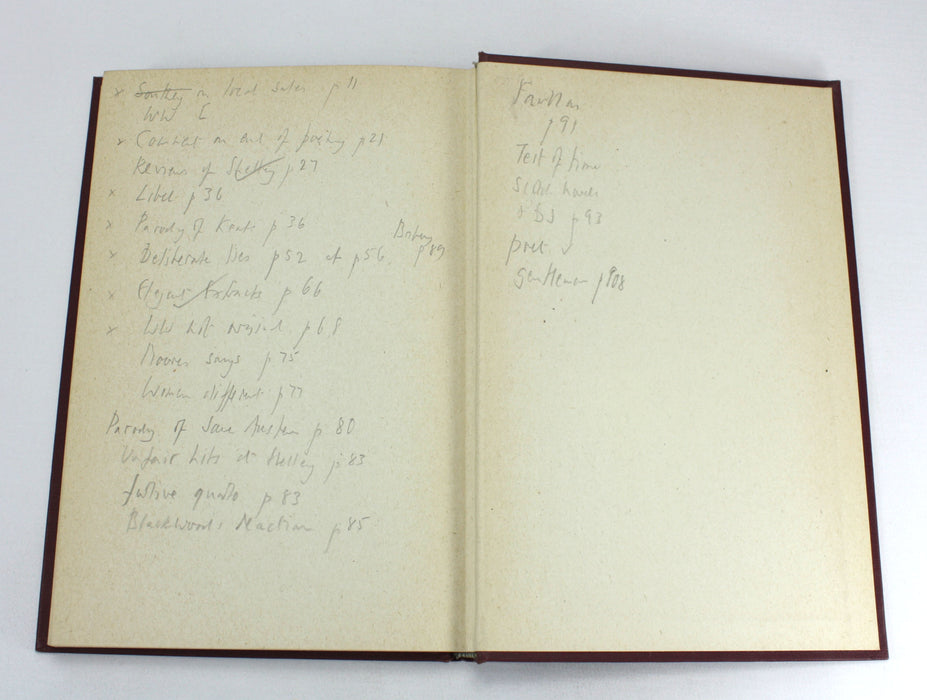 x Southey on local sales p 11
WW
x Comment on end of poetry p 21
Reviews of Shelley p 27
x Libel p 36
x Parody of Keats p 36
x Deliberate lies p 52 at p 56.
p 89
x Elegant Extracts p 66
x WW not original p 68
Moores songs p 75
Women different p 77
Parody of Jane Austen p 80
Unfair hits at Shelley p 83
quote p 83
Blackwoods Reaction p 85
p 91
Test of time
p 93
poet
gentleman p 108